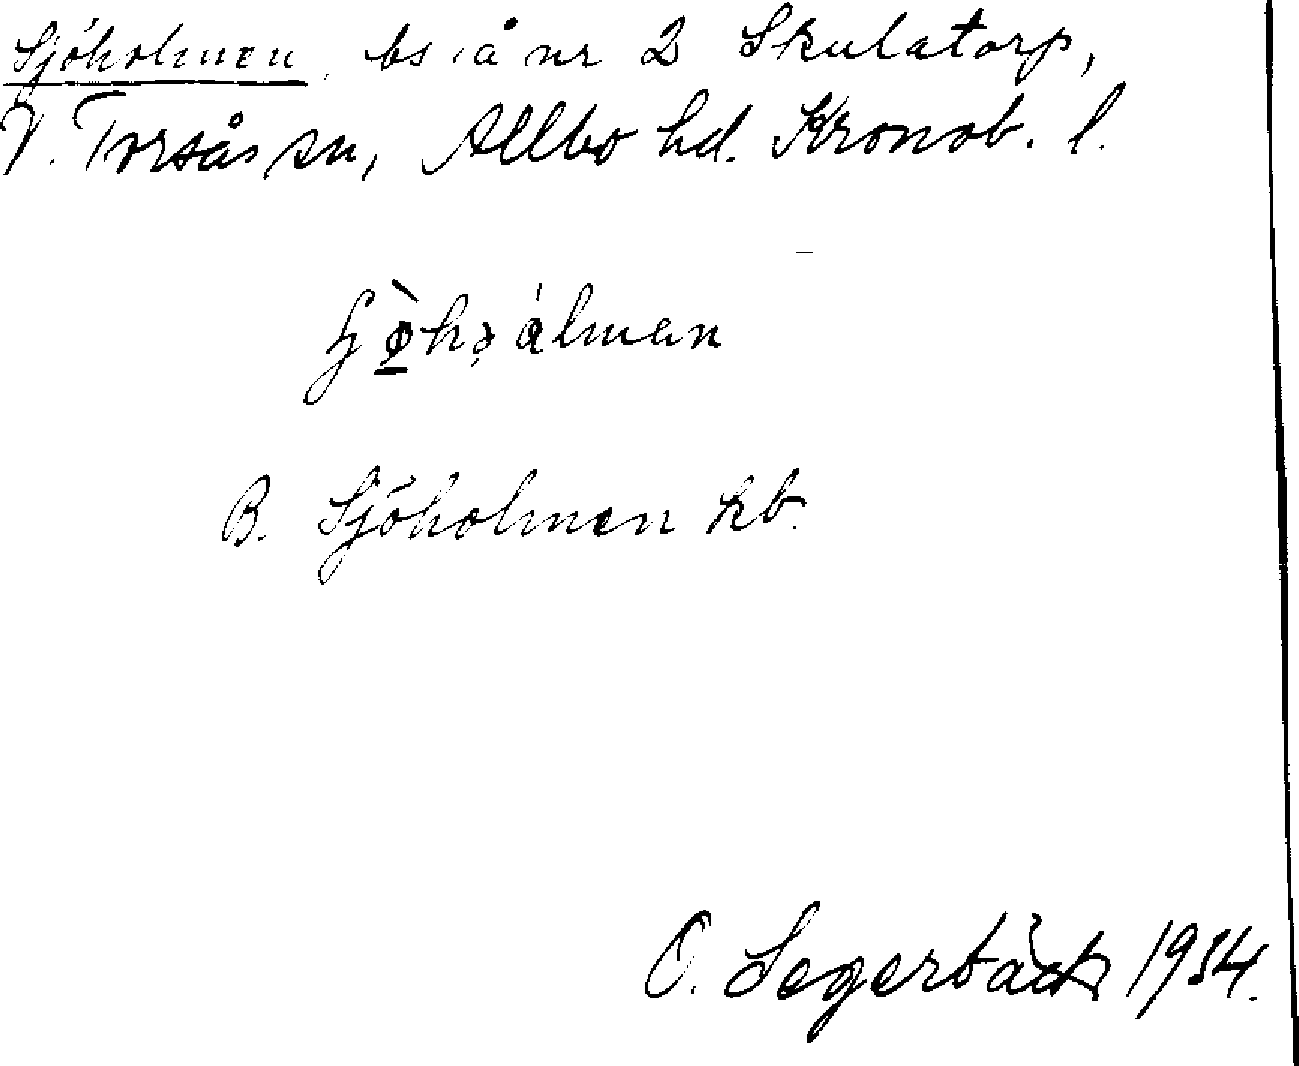 Sjöholmen, bs å nr 2 Skulatorp,
V. Torsås sn, Allbo hd. Kronob. l.
B. Sjöholmen kb.
O. Segerbäck 1934.